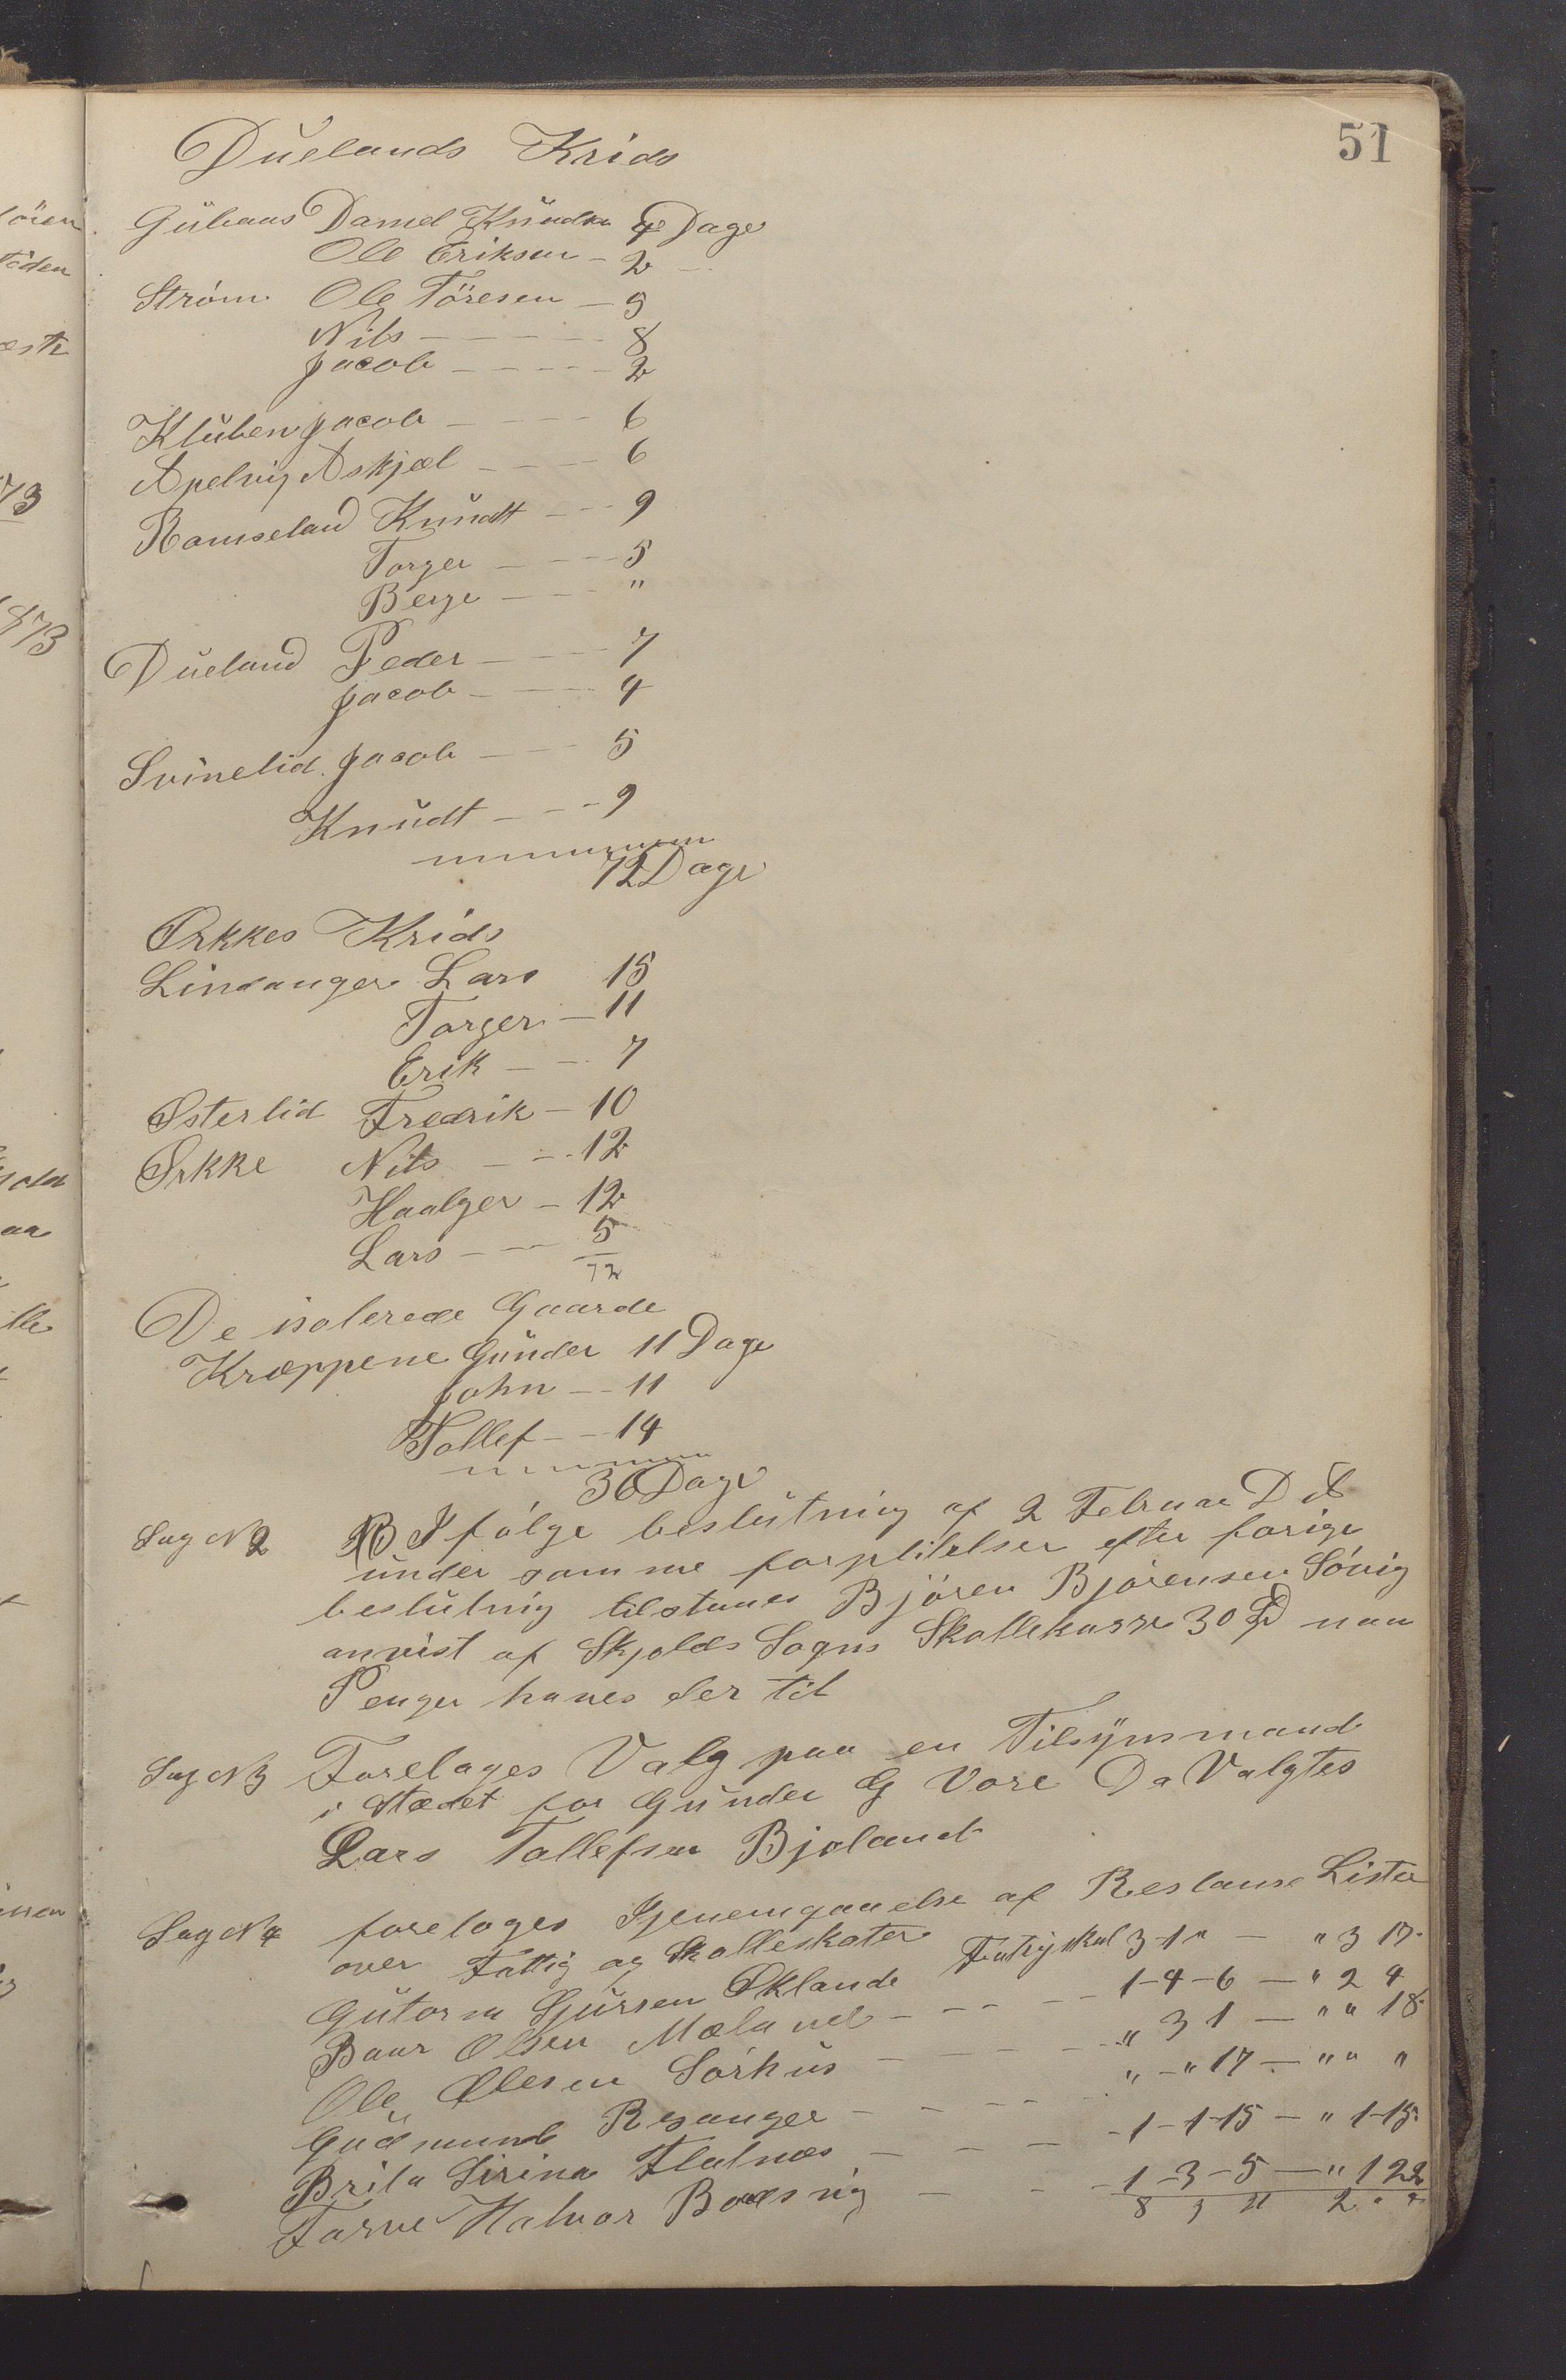 51
Duelands Krids
Guhaus Daniel Knudsen 4 Dage
Ole Eriksen - 2 -
Strøm Ole Töresen - 5
Nils - - - - - 8
Jacob - - - - - 2
Kluben Jacob - - - - 6
Apelvig Askjæl - - - - 6
Ramseland Knudt - - - 9
Torger - - - - 5
Berge - - - "
Dueland Peder - - - - 7
Jacob - - - - 4
Svinelid Jacob - - - 5
Knudt - - - 9
72 Dage
Ørkkes Krids
Lindanger Lars 15
Torger - 11
Erik - - 7
Østerlid Fredrik - 10
Ørkke Nils - - - 12
Haalger - 12
Lars - - - 5
72
De isolerede Gaarde
Kroppene Gunder 11 Dage
John - - 11
Tollef - - 14
36 Dage
Sag N 2 Ifølge beslutning af 2 Februar D A
under samme forplitelser efter forige
beslutning tilstaaes Bjøren Bjørensen Søvig
anvist af Skjolds Sogns Skollekasse 30 naa
Penger haves der til
Sag N 3 Foretoges Valg paa en Tilsynsmand
i Stædet for Gunder G Vore Da Valgtes
Lars Tollefsen Bjoland
Sag N 4 foretoges Gjenemgaaelse af Restanse Lister
over Fattig og Skolleskater
Gutorm Sjursen Økland Fatigskat 3 - 1 " - " 3 17
Baar Olsen Mæland - - - - 1 - 4 - 6 - " 2 4
Ole Olesen Sørhus - - - - " 3 1 - " " 18
Gudmund Resanger - - - " - " 17 - " " "
Brita Sirina Flatnæs - - - 1 - 1 - 15 - " 1 - 15
Halvor - - - 1 - 3 - 5 - " 1 22
8 3 21 2 " 4